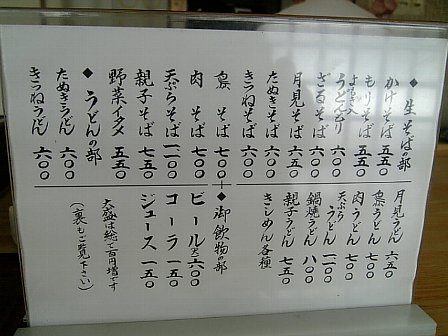 ◆生そばの部
かけそば 五五〇
もりそば 五五〇
ざるそば 六〇〇
月見そば 六五〇
たぬきそば 六〇〇
きつねそば 六〇〇
魚そば 七〇〇
肉そば 七〇〇
天ぷらそば 一一〇〇
親子そば 七五〇
野菜イタメ 五五〇
◆うどんの部
たぬきうどん 六〇〇
きつねうどん 六〇〇
月見うどん 六五〇
魚うどん 七〇〇
肉うどん 七〇〇
天ぷらうどん 一一〇〇
鍋焼うどん 八〇〇
親子うどん 七五〇
きしめん各種
◆御飲物の部
ビール大 六〇〇
コーラ 一五〇
ジュース 一五〇
大盛は総て二百円増です
(裏もご覧下さい)